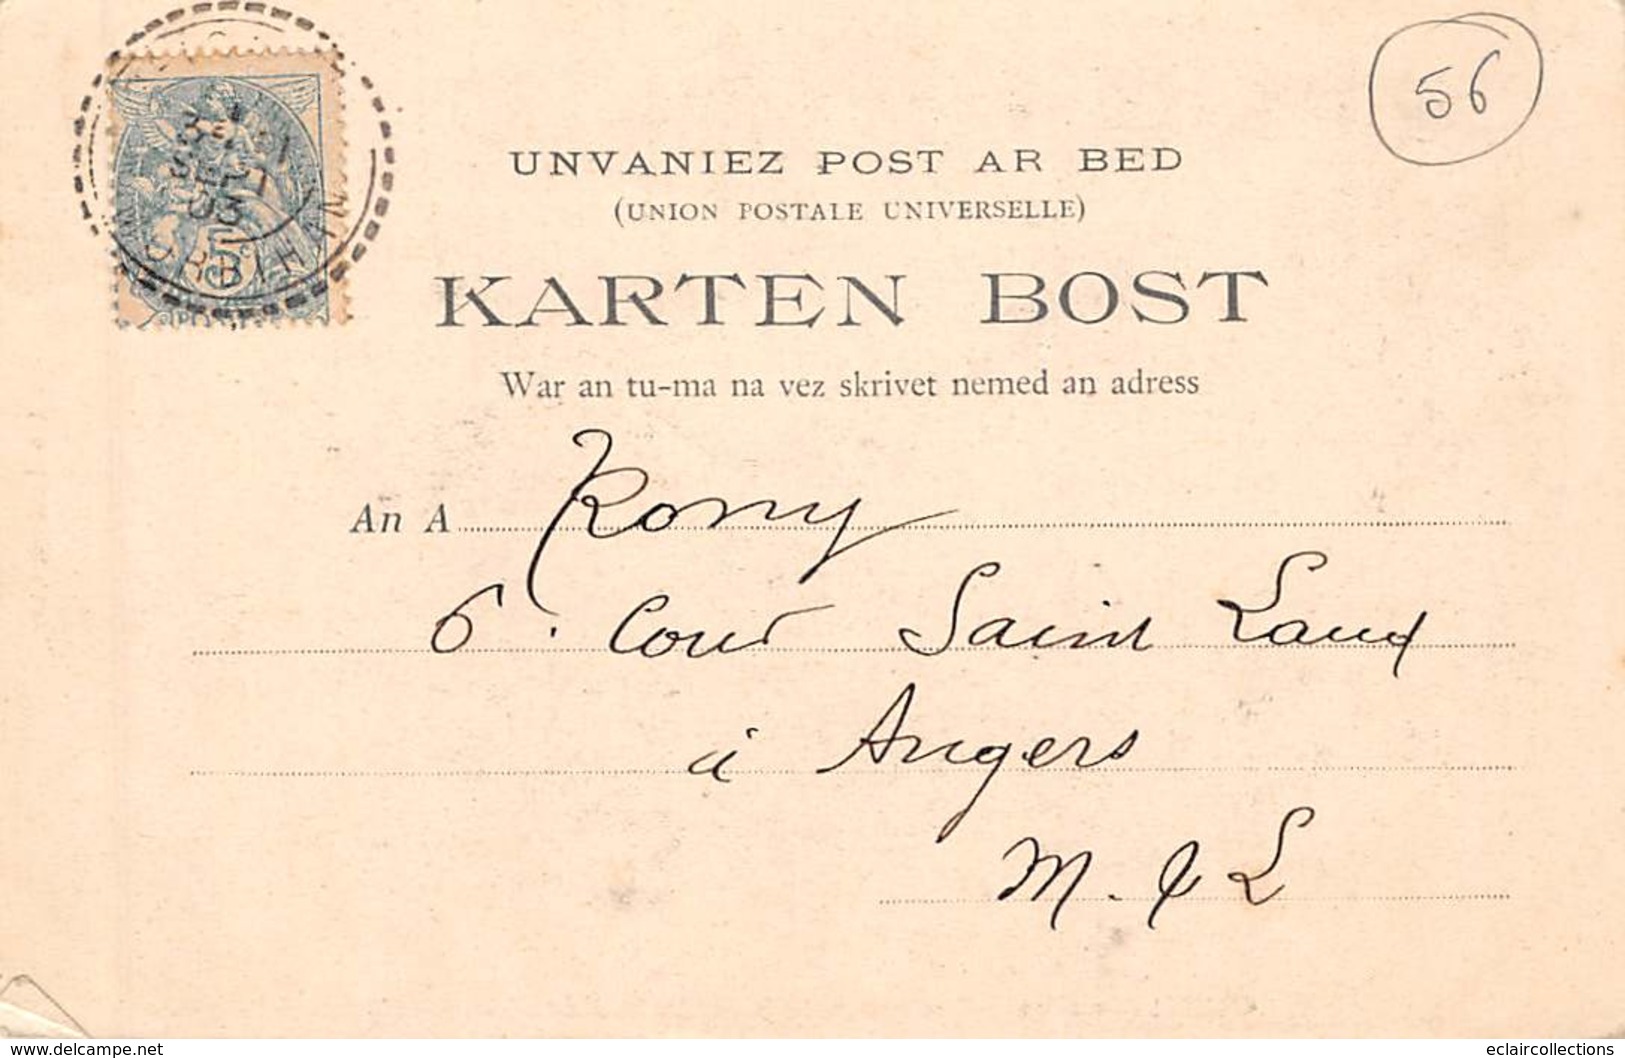 56
UNVANIEZ POST AR BED
(UNION POSTALE UNIVERSELLE)
KARTEN BOST
War an tu-ma na vez skrivet nemed an adress
An A Romy
6. Cour Saint Laud
à Angers
M. & L
MORBIHAN
www.delcampe.net
eclaircollections